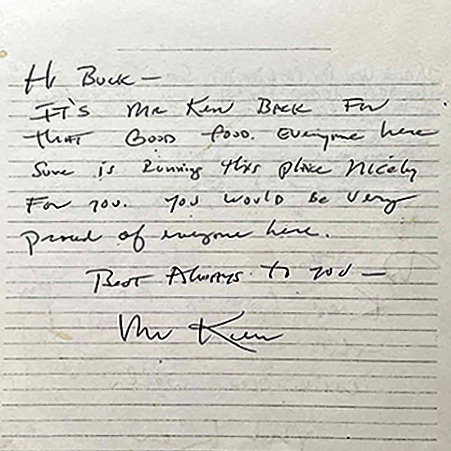 Hi Buck —
IT'S MR Ken Back For
that Good food. Everyone here
Sure is Running this place Nicely
For you. You would be very
proud of everyone here.
Best Always to you —
Mr Ken